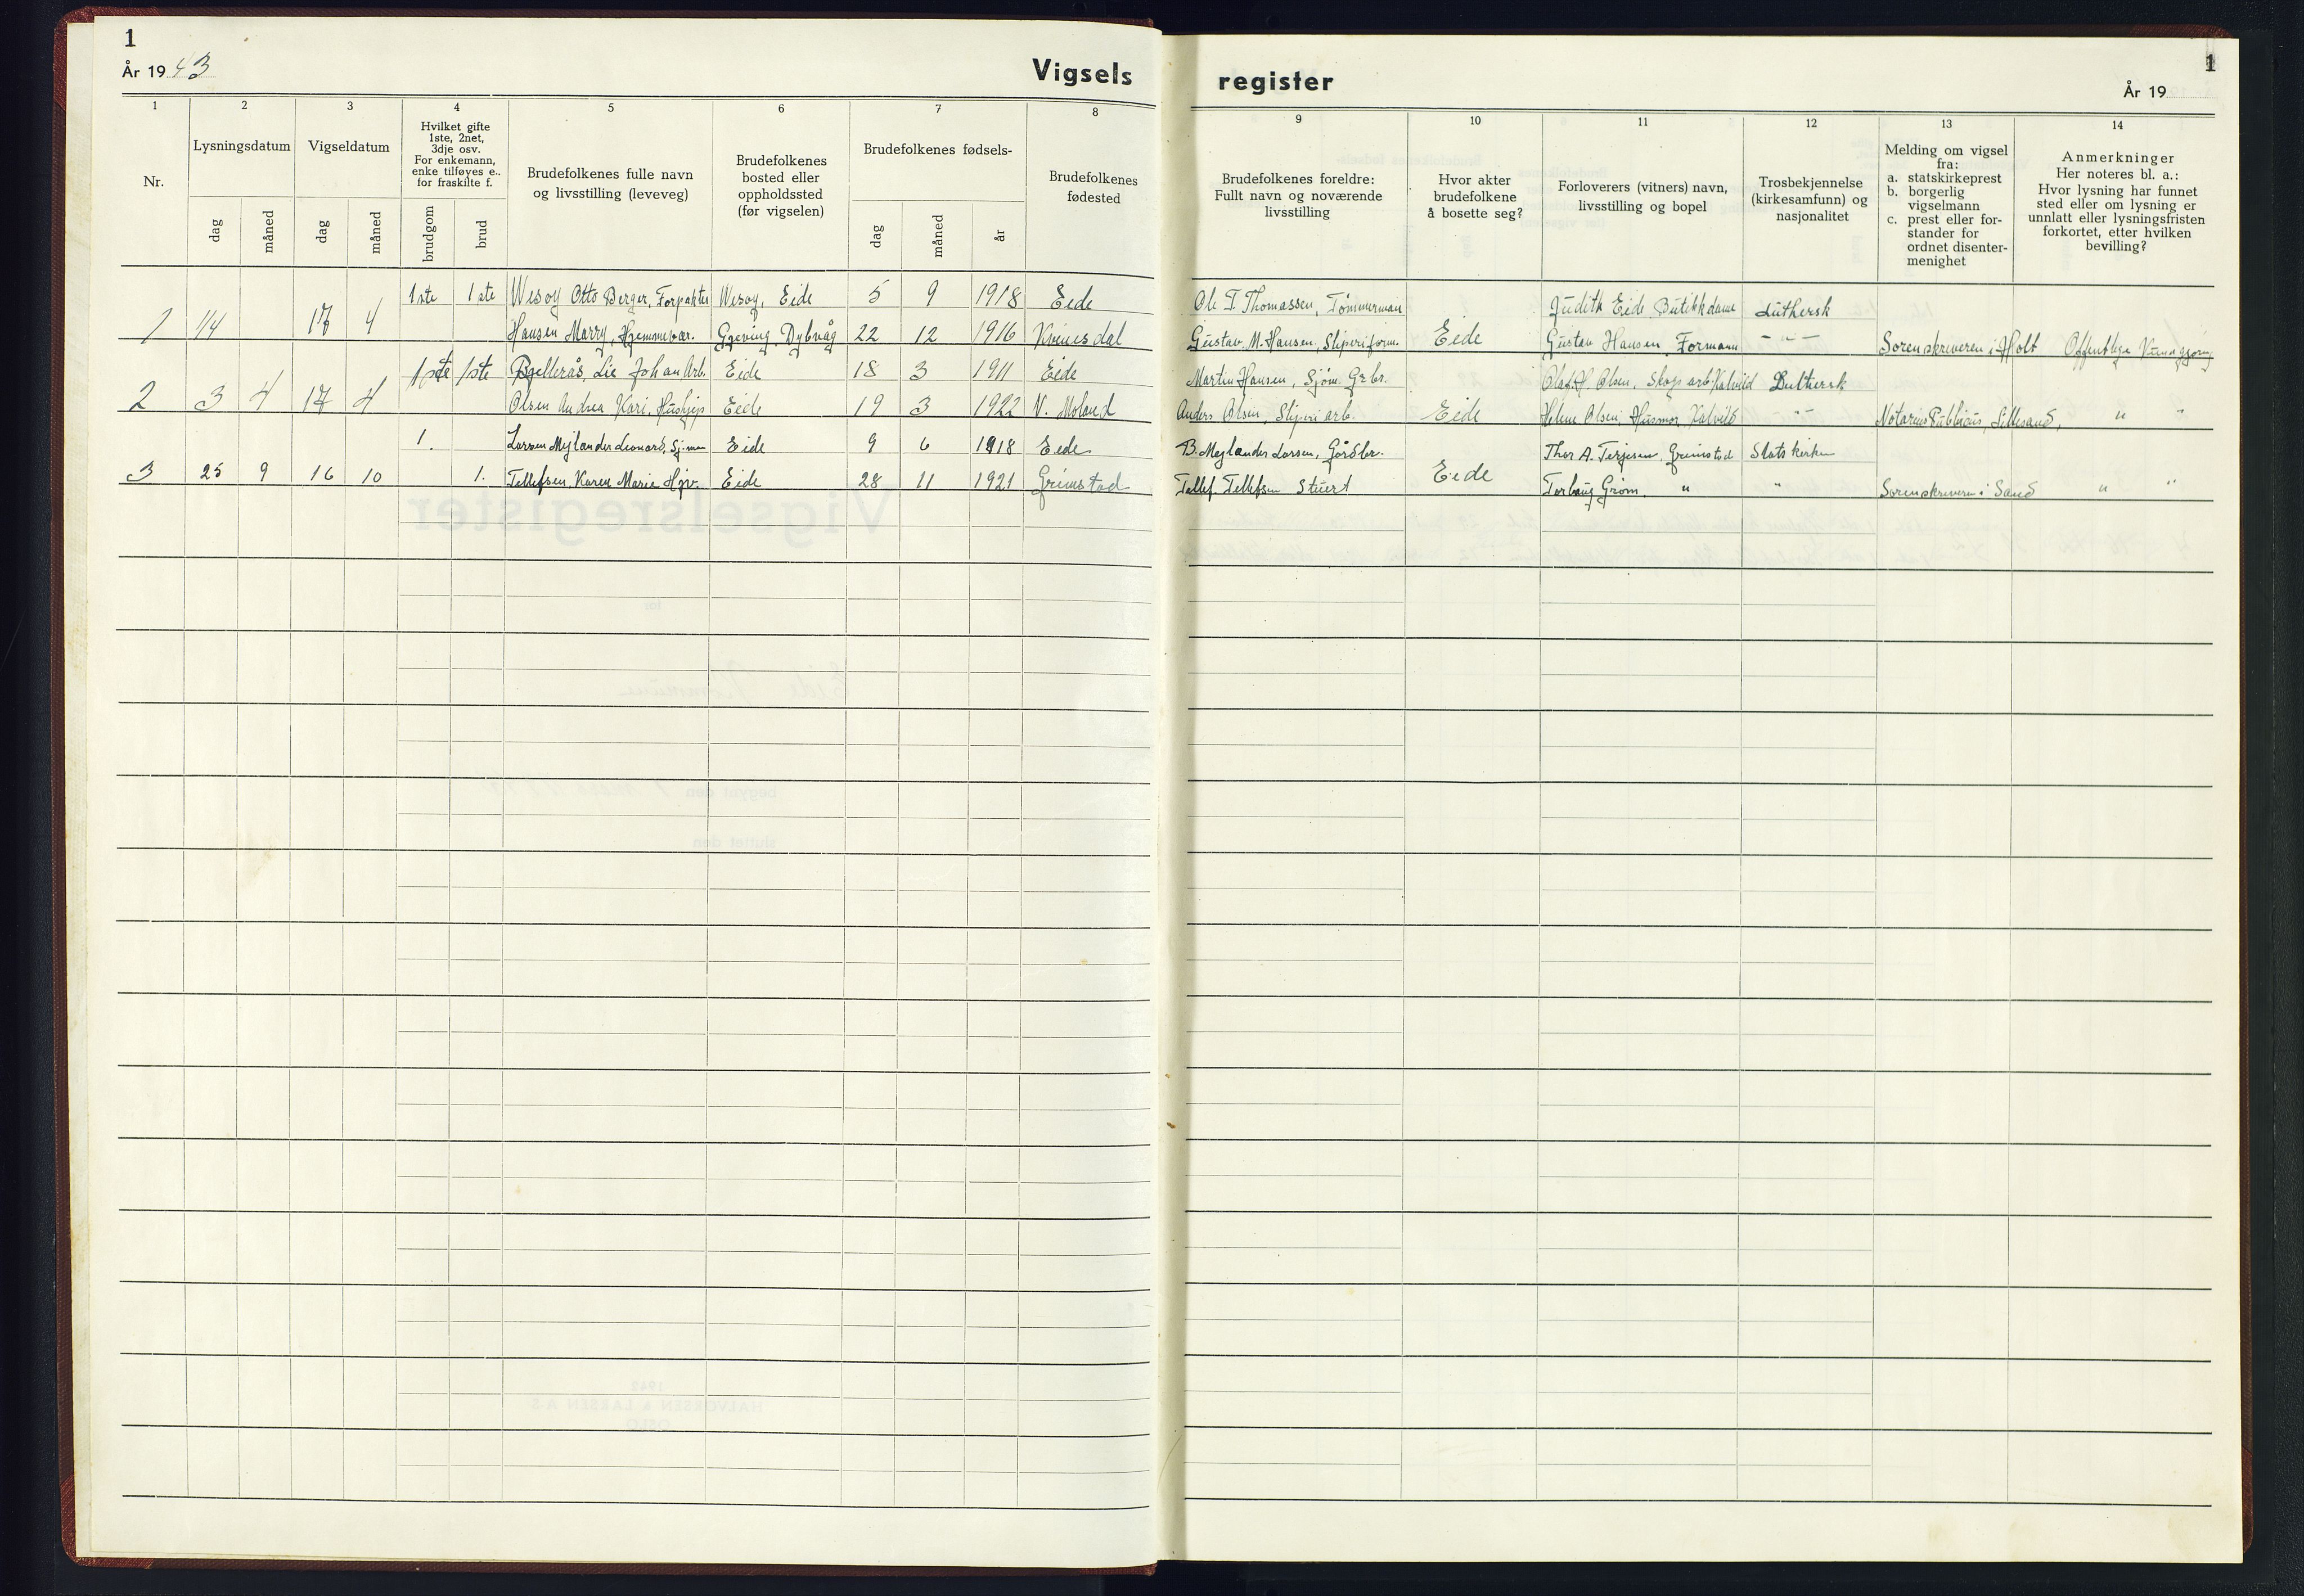 1
År 19 43
Vigsels
1 2 3 4 5 6 7 8
Nr.
Lysningsdatum
dag måned
Vigseldatum
dag måned
Hvilket gifte
1ste, 2net,
3dje osv.
For enkemann,
enke tilføyes e..
for fraskilte f.
brudgom brud
Brudefolkenes fulle navn
og livsstilling (leveveg)
Brudefolkenes
bosted eller
oppholdssted
(før vigselen)
Brudefolkenes fødsels-
dag måned år
Brudefolkenes
fødested
1ste 1ste Wesøy Otto Berger, Forpakter Wesøy, Eide 5 9 1918 Eide
1 1/4 17 4 Hansen Marry, Hjemmevær. Gjeving, Dybvåg 22 12 1916 Kvinesdal
1ste 1ste Bjellerås, Lie Johan Arb. Eide 18 3 1911 Eide
2 3 4 17 4 Olsen Andrea Kari, Hushjelp Eide 19 3 1922 V. Moland
1. Larsen Mejlander Leonard, Sj.man Eide 9 6 1918 Eide
3 25 9 16 10 1. Tellefsen Karen Marie Hjv. Eide 28 11 1921 Grimstad
register
1
År 19
9 10 11 12 13 14
Brudefolkenes foreldre:
Fullt navn og noværende
livsstilling
Hvor akter
brudefolkene
å bosette seg?
Forloverers (vitners) navn,
livsstilling og bopel
Trosbekjennelse
(kirkesamfunn) og
nasjonalitet
Melding om vigsel
fra:
a. statskirkeprest
b. borgerlig
vigselmann
c. prest eller for-
stander for
ordnet disenter-
menighet
Anmerkninger
Her noteres bl. a.:
Hvor lysning har funnet
sted eller om lysning er
unnlatt eller lysningsfristen
forkortet, etter hvilken
bevilling?
Ole T. Thomassen, Tømmerman Judith Eide Butikkdame Luthersk
Gustav M. Hansen, Sliperiform. Eide Gustav Hansen, Formann - " - Sorenskriveren i Holt Offentlige Kunngjøring
Martin Hansen, Sjøm. Grbr. Olaf H. Olsen, Skogsarb. Kalvild Luthersk
Anders Olsen, Sliperiarb. Eide Helene Olsen, Husmor, Kalvild " " Notarius Publicus, Lillesand, " "
B. Mejlander Larsen, Gårdbr. Thor A. Terjesen, Grimstad Statskirken
Tellef Tellefsen Stuert Eide Torbaug Grøm, " " Sorenskriveren i Sand " "